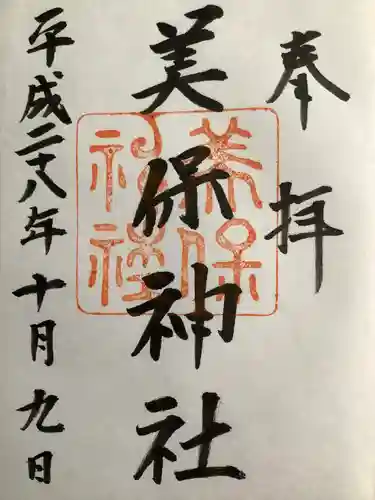 奉拝
美保神社
美保神社
平成二十八年十月九日